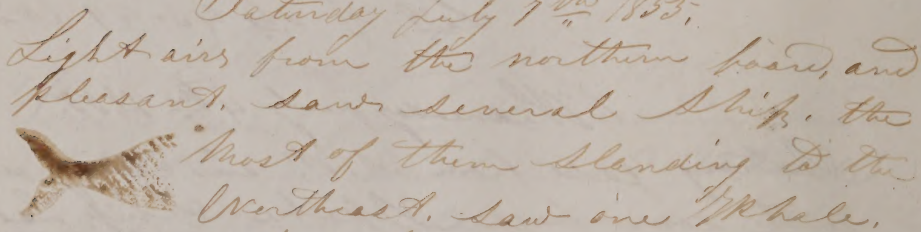 Saturday July 7th 1855.
Light airs from the northern board, and
pleasant. saw several Ships. the
Most of them standing to the
Northeast. saw one Whale.